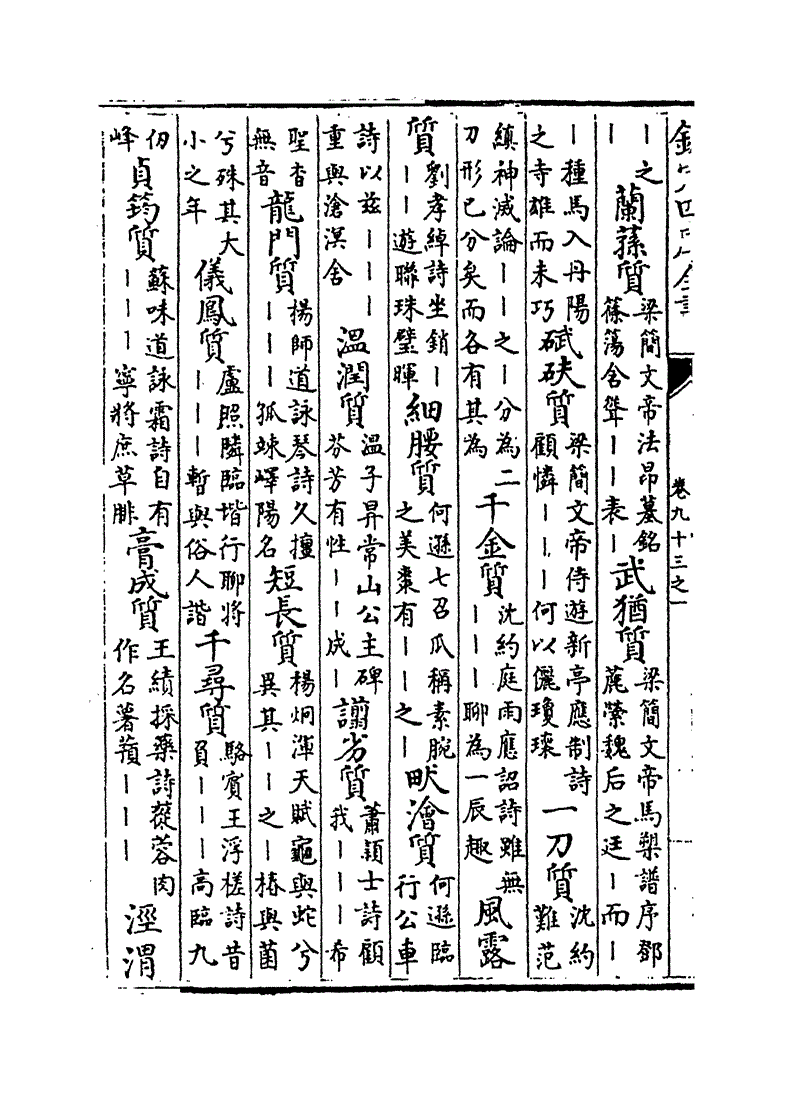 卷九十三之一
丨之丨 蘭蓀質 梁簡文帝法昂墓銘篠蕩含聳丨丨表丨 武猶質 梁簡文帝馬槊譜序鄧麂縈魏后之廷丨而丨
丨種馬入丹陽之寺雄而未巧 碔砆質 梁簡文帝侍遊新亭應制詩顧憐丨丨丨何以儷瓊瑰 一刀質 沈約難范
縝神滅論丨丨之丨分為二刀形已分矣而各有其為 千金質 沈約庭雨應詔詩雖無丨丨丨聊為一辰趣 風露
質 劉孝綽詩坐銷丨丨丨遊聯珠璧暉 細腰質 何遜七召瓜稱素腕之美棗有丨丨之丨 畎澮質 何遜臨行公車
詩以兹丨丨丨重與滄溟舍 溫潤質 溫子昇常山公主碑芬芳有性丨丨成丨 譾劣質 蕭頴士詩顧我丨丨丨希
聖杳無音 龍門質 楊師道詠琴詩久擅丨丨丨孤竦嶧陽名 短長質 楊炯渾天賦龜與蛇兮異其丨丨之丨椿與菌
兮殊其大小之年 儀鳳質 盧照隣臨堦行聊將丨丨丨暫與俗人諧 千尋質 駱賓王浮槎詩昔負丨丨丨高臨九
仞峰 貞筠質 蘇味道詠霜詩自有丨丨丨寧將庶草腓 膏成質 王績採藥詩蓯蓉肉作名薯蕷丨丨丨 涇渭